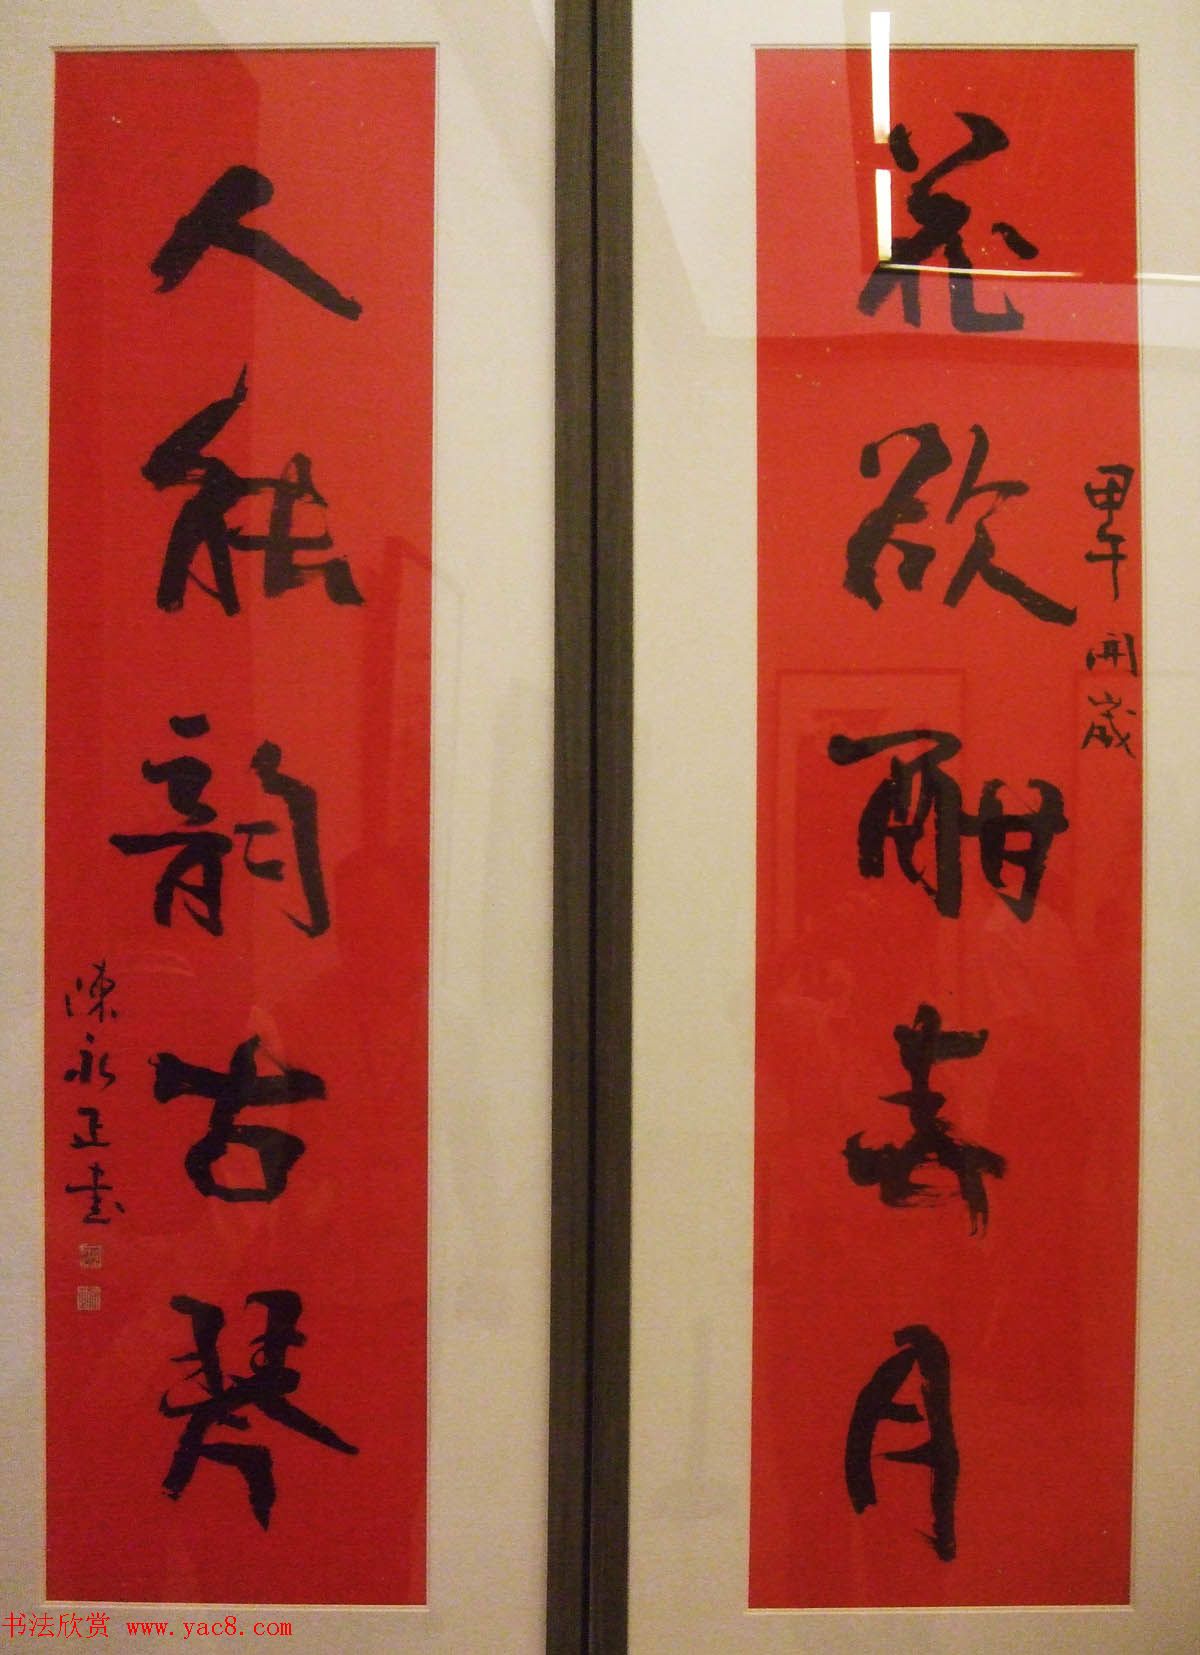 花欲酣春月
甲午開歲
人能韵古琴
陳永正書
书法欣赏 www.yac8.com